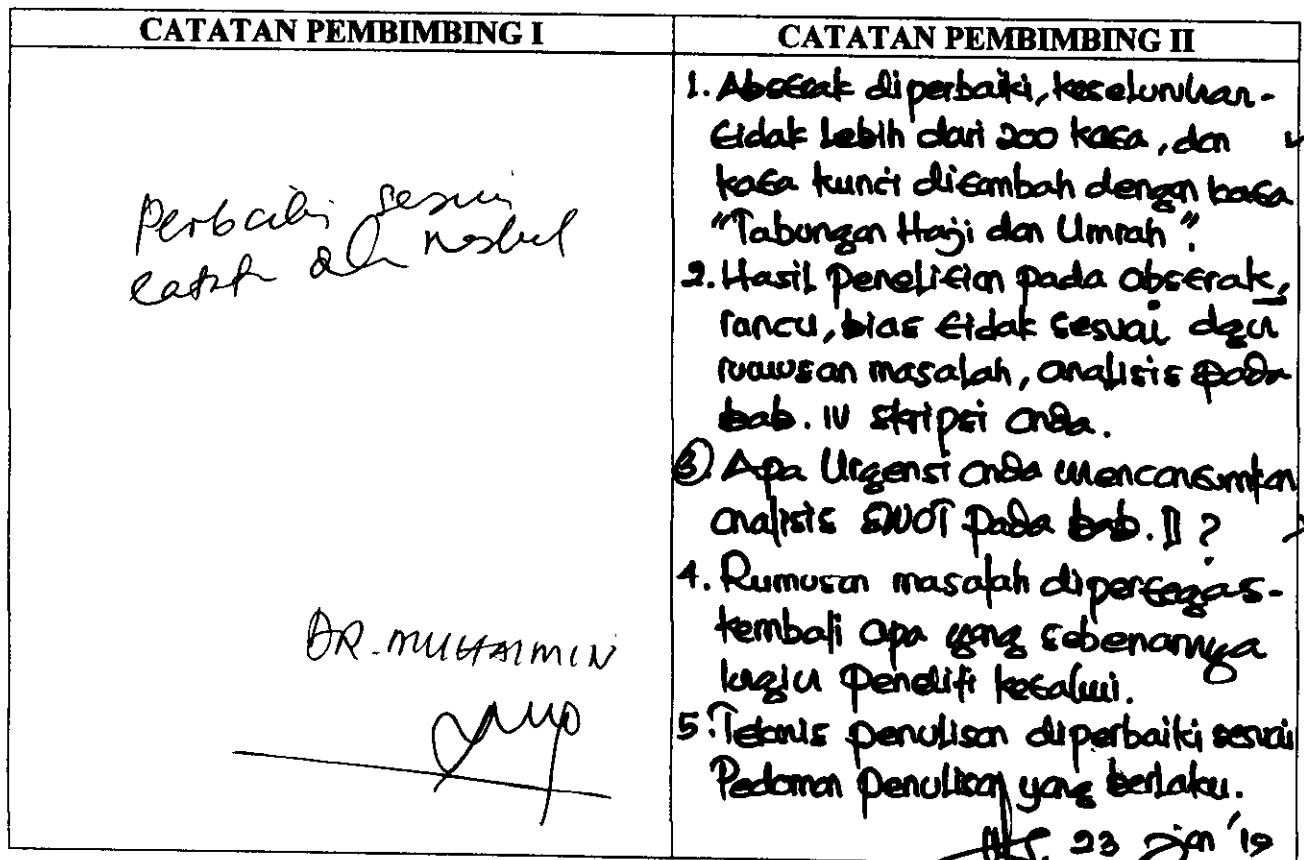 CATATAN PEMBIMBING I
Perbaiki sesuai
catatan dlm naskah
DR. MUHAIMIN
CATATAN PEMBIMBING II
1. Abstrak diperbaiki, keseluruhan -
tidak lebih dari 200 kata, dan
kata kunci ditambah dengan kata
"Tabungan Haji dan Umrah".
2. Hasil penelitian pada abstrak,
rancu, bias tidak sesuai dgn
rumusan masalah, analisis pada
bab. IV skripsi anda.
3. Apa Urgensi anda mencantumkan
analisis SWOT pada bab. II ?
4. Rumusan masalah dipertegas -
kembali apa yang sebenarnya
ingin peneliti ketahui.
5. Teknis penulisan diperbaiki sesuai
Pedoman penulisan yang berlaku.
23 Jan '19